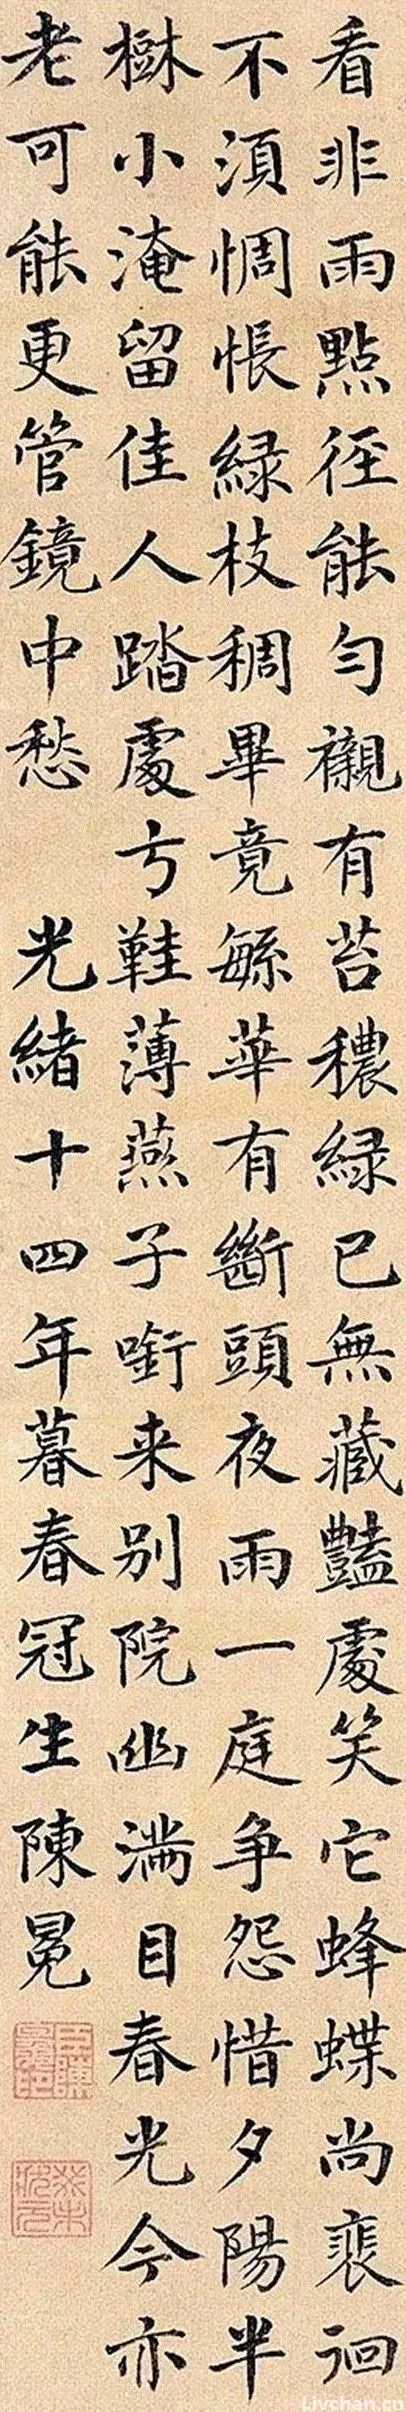 看非雨點径能勻襯有苔穠緑已無藏豔處笑它蜂蝶尚裴徊
不湏惆悵緑枝稠畢竟緐華有斷頭夜雨一庭争怨惜夕陽半
樹小淹留佳人踏處弓鞋薄燕子啣来别院幽滿目春光今亦
老可能更管鏡中愁 光緒十四年暮春冠生陳冕
Livchan.cn